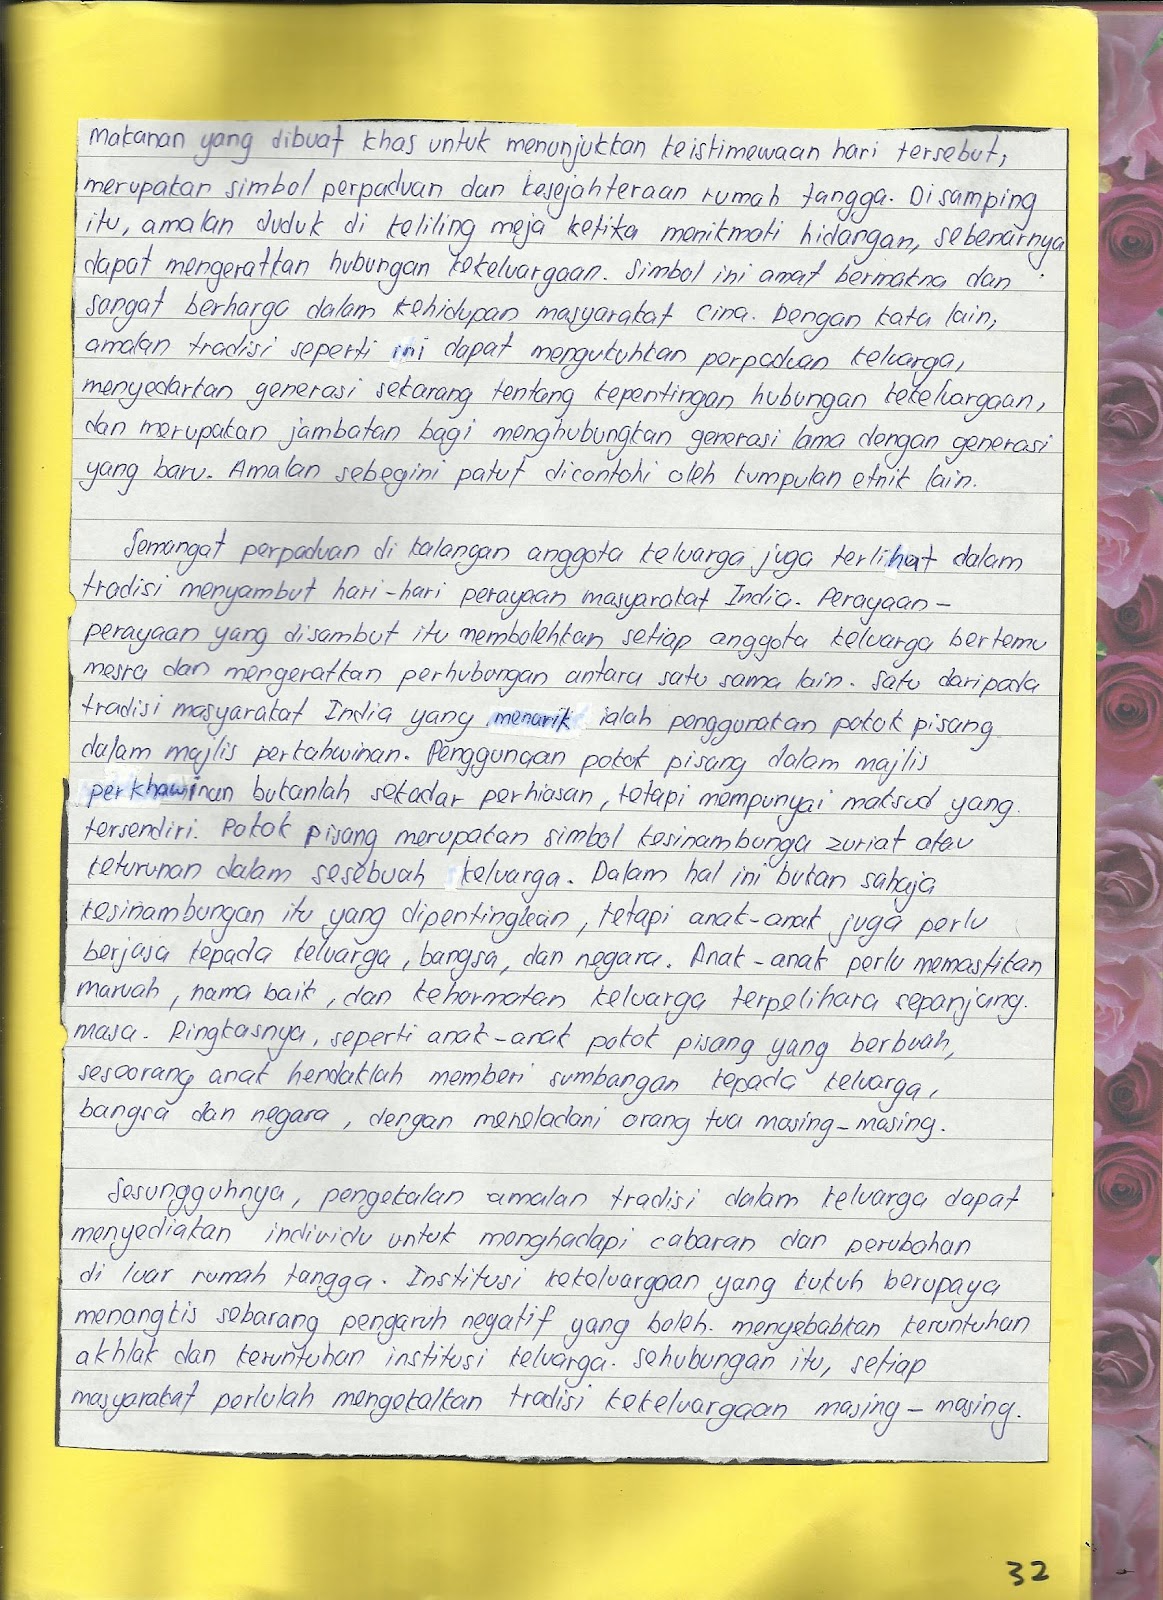 makanan yang dibuat khas untuk menunjukkan keistimewaan hari tersebut,
merupakan simbol perpaduan dan kesejahteraan rumah tangga. Di samping
itu, amalan duduk di keliling meja ketika menikmati hidangan, sebenarnya
dapat mengeratkan hubungan kekeluargaan. Simbol ini amat bermakna dan
sangat berharga dalam kehidupan masyarakat cina. Dengan kata lain,
amalan tradisi seperti ini dapat mengukuhkan perpaduan keluarga,
menyedarkan generasi sekarang tentang kepentingan hubungan kekeluargaan,
dan merupakan jambatan bagi menghubungkan generasi lama dengan generasi
yang baru. Amalan sebegini patut dicontohi oleh kumpulan etnik lain.
Semangat perpaduan di kalangan anggota keluarga juga terlihat dalam
tradisi menyambut hari-hari perayaan masyarakat India. Perayaan-
perayaan yang disambut itu membolehkan setiap anggota keluarga bertemu
mesra dan mengeratkan perhubungan antara satu sama lain. Satu daripada
tradisi masyarakat India yang menarik ialah penggunakan pokok pisang
dalam majlis perkahwinan. Penggunaan pokok pisang dalam majlis
perkhawinan bukanlah sekadar perhiasan, tetapi mempunyai maksud yang
tersendiri. Pokok pisang merupakan simbol kesinambunga zuriat atau
keturunan dalam sesebuah keluarga. Dalam hal ini bukan sahaja
kesinambungan itu yang dipentingkan, tetapi anak-anak juga perlu
berjasa kepada keluarga, bangsa, dan negara. Anak-anak perlu memastikan
maruah, nama baik, dan kehormatan keluarga terpelihara sepanjang
masa. Ringkasnya, seperti anak-anak pokok pisang yang berbuah,
seseorang anak hendaklah memberi sumbangan kepada keluarga,
bangsa dan negara, dengan meneladani orang tua masing-masing.
Sesungguhnya, pengekalan amalan tradisi dalam keluarga dapat
menyediakan individu untuk menghadapi cabaran dan perubahan
di luar rumah tangga. Institusi kekeluargaan yang kukuh berupaya
menangkis sebarang pengaruh negatif yang boleh menyebabkan keruntuhan
akhlak dan keruntuhan institusi keluarga. Sehubungan itu, setiap
masyarakat perlulah mengekalkan tradisi kekeluargaan masing-masing.
32